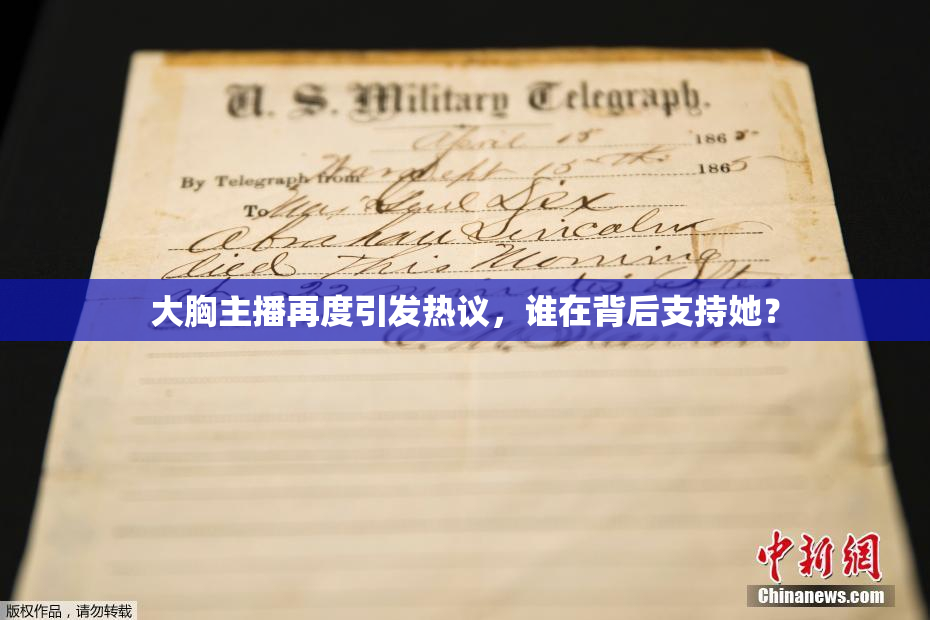 U. S. Military Telegraph.
April 15 1865
By Telegraph from War Dept 15th 1865
To Maj Genl Dix
Abraham Lincoln
died This Morning
at 22 minutes after
大胸主播再度引发热议，谁在背后支持她？
E. M. Stanton
中新網
Chinanews.com
版权作品，请勿转载